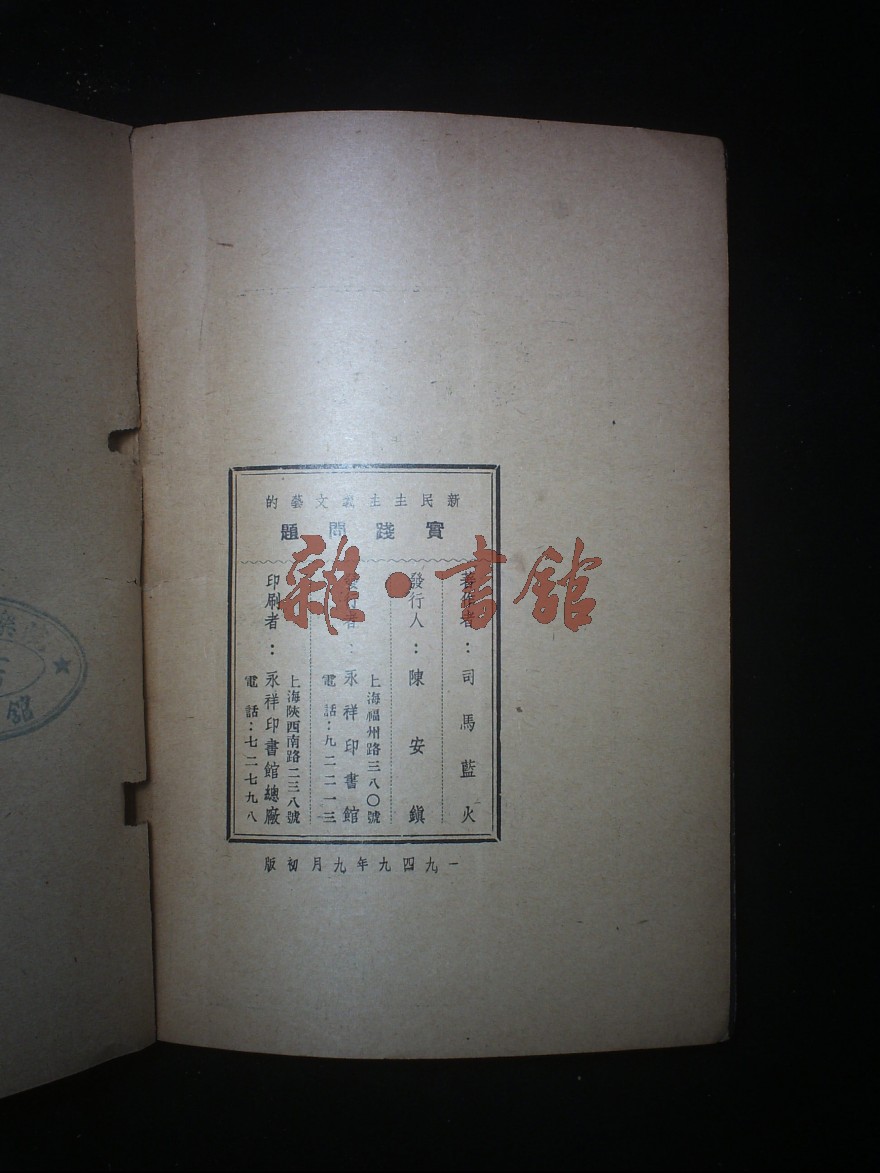 新民主主義文藝的
實踐問題
著作者：司馬藍火
發行人：陳安鎭
上海福州路三八〇號
發行者：永祥印書館
電話：九二二一三
上海陝西南路二三八號
印刷者：永祥印書館總廠
電話：七二七九八
一九四九年九月初版
雜·書館
館